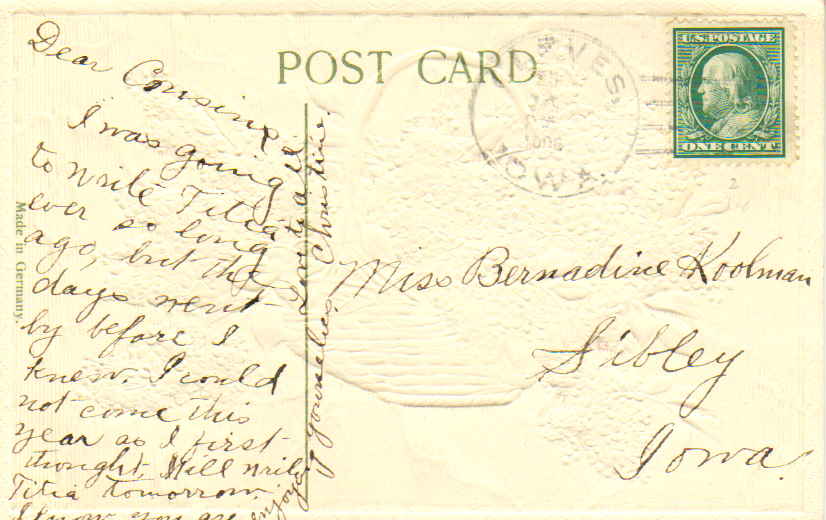 POST CARD
U.S. POSTAGE
ONE CENT
IOWA
Made in Germany.
Dear Cousins
I was going
to write Titia
ever so long
ago, but the
days went
by before I
knew. I could
not come this
year as I first
thought. Will write
Titia tomorrow.
I know you are
enjoying yourselves.
Love to all
Christine.
Miss Bernadine Koolman
Sibley
Iowa.
2